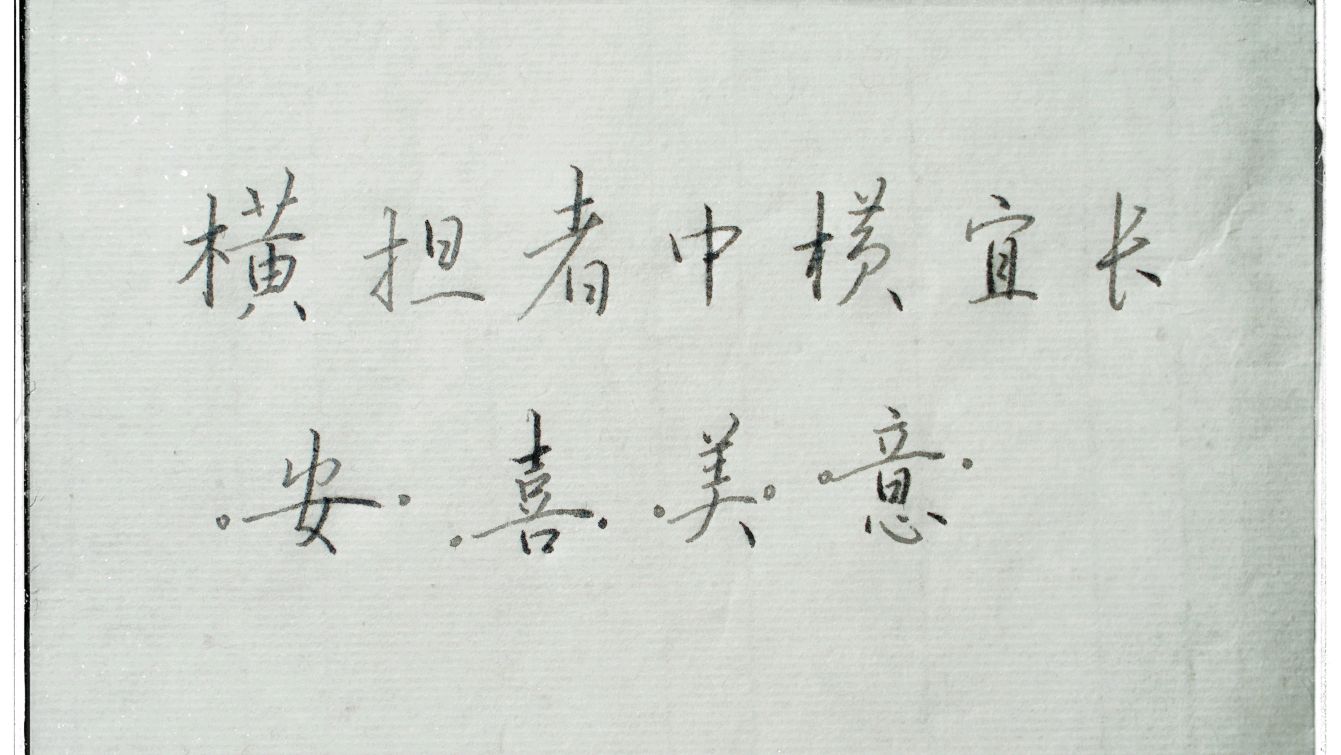 横担者中横宜长
安喜美意